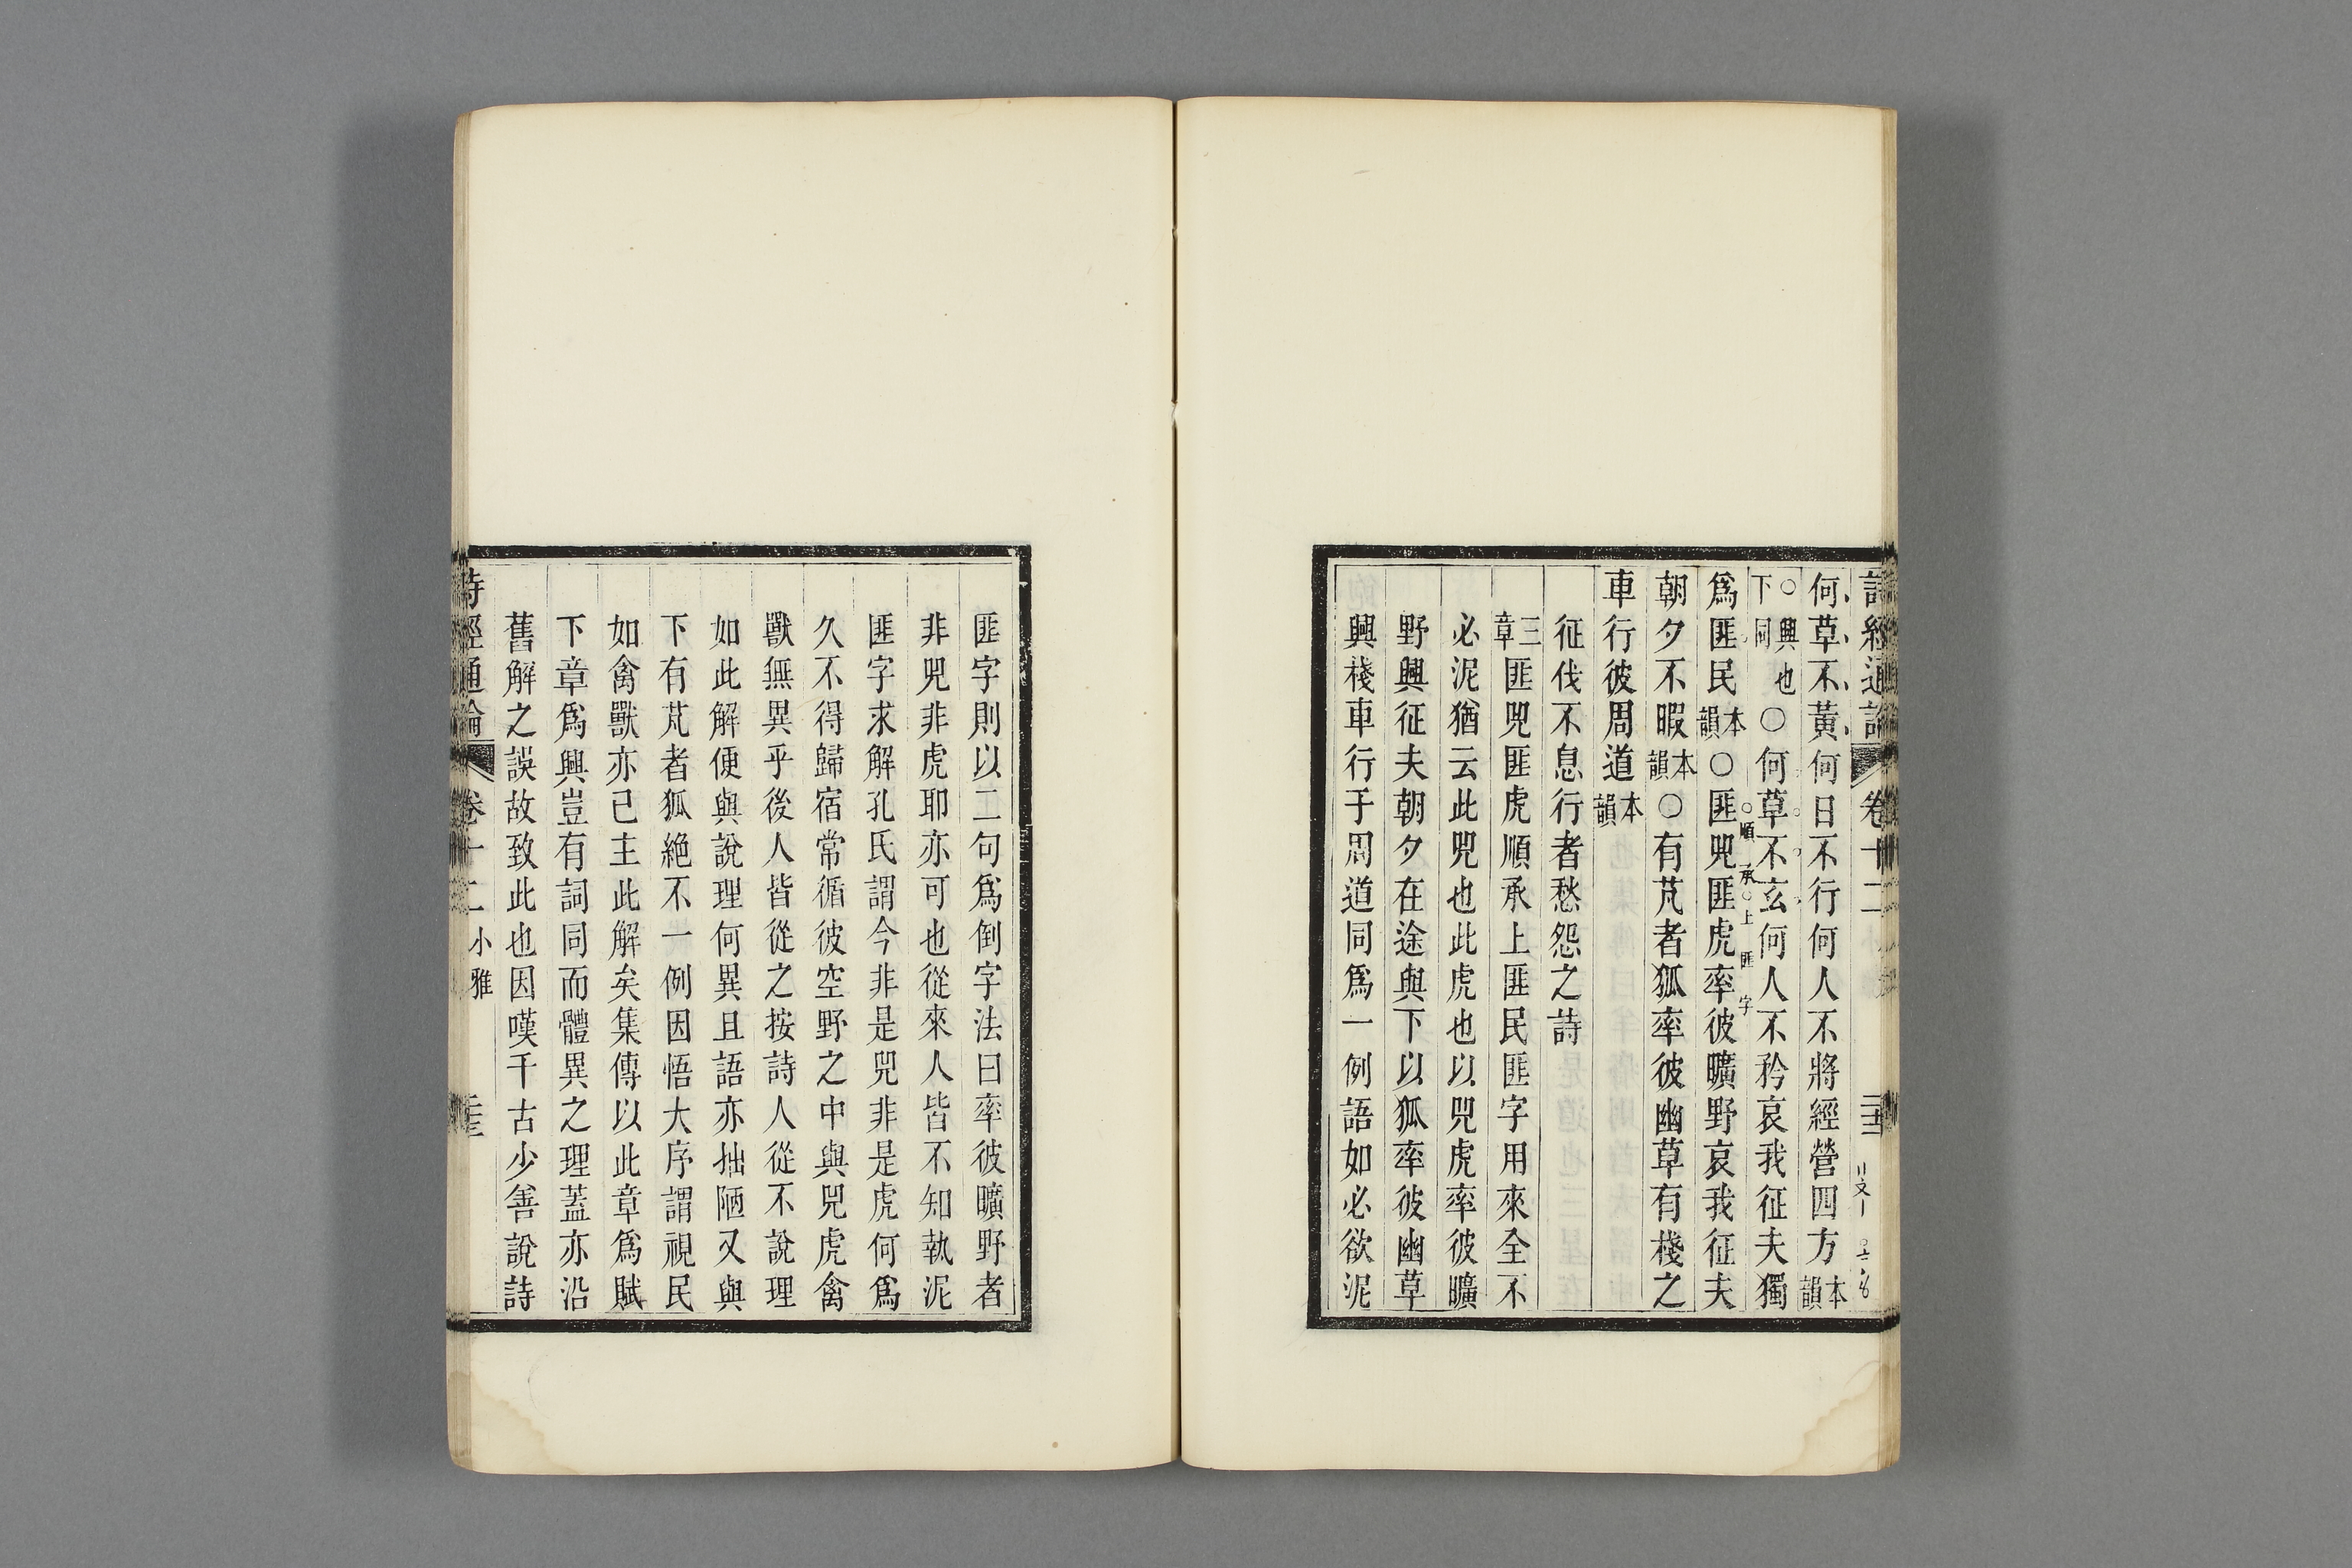 詩經通論 卷十二 二十二
何草不黃何日不行何人不將經營四方本韻
○興也下同○何草不玄何人不矜哀我征夫獨
爲匪民本韻○匪兕匪虎率彼曠野哀我征夫
○順承○上匪字
朝夕不暇本韻○有芃者狐率彼幽草有棧之
車行彼周道本韻
征伐不息行者愁怨之詩
三章匪兕匪虎順承上匪民匪字用來全不
必泥猶云此兕也此虎也以兕虎率彼曠
野興征夫朝夕在途與下以狐率彼幽草
興棧車行于周道同爲一例語如必欲泥
匪字則以二句爲倒字法曰率彼曠野者
非兕非虎耶亦可也從來人皆不知執泥
匪字求解孔氏謂今非是兕非是虎何爲
久不得歸宿常循彼空野之中與兕虎禽
獸無異乎後人皆從之按詩人從不說理
如此解便與說理何異且語亦拙陋又與
下有芃者狐絶不一例因悟大序謂視民
如禽獸亦已主此解矣集傳以此章爲賦
下章爲興豈有詞同而體異之理蓋亦沿
舊解之誤故致此也因嘆千古少善說詩
詩經通論 卷十二 小雅